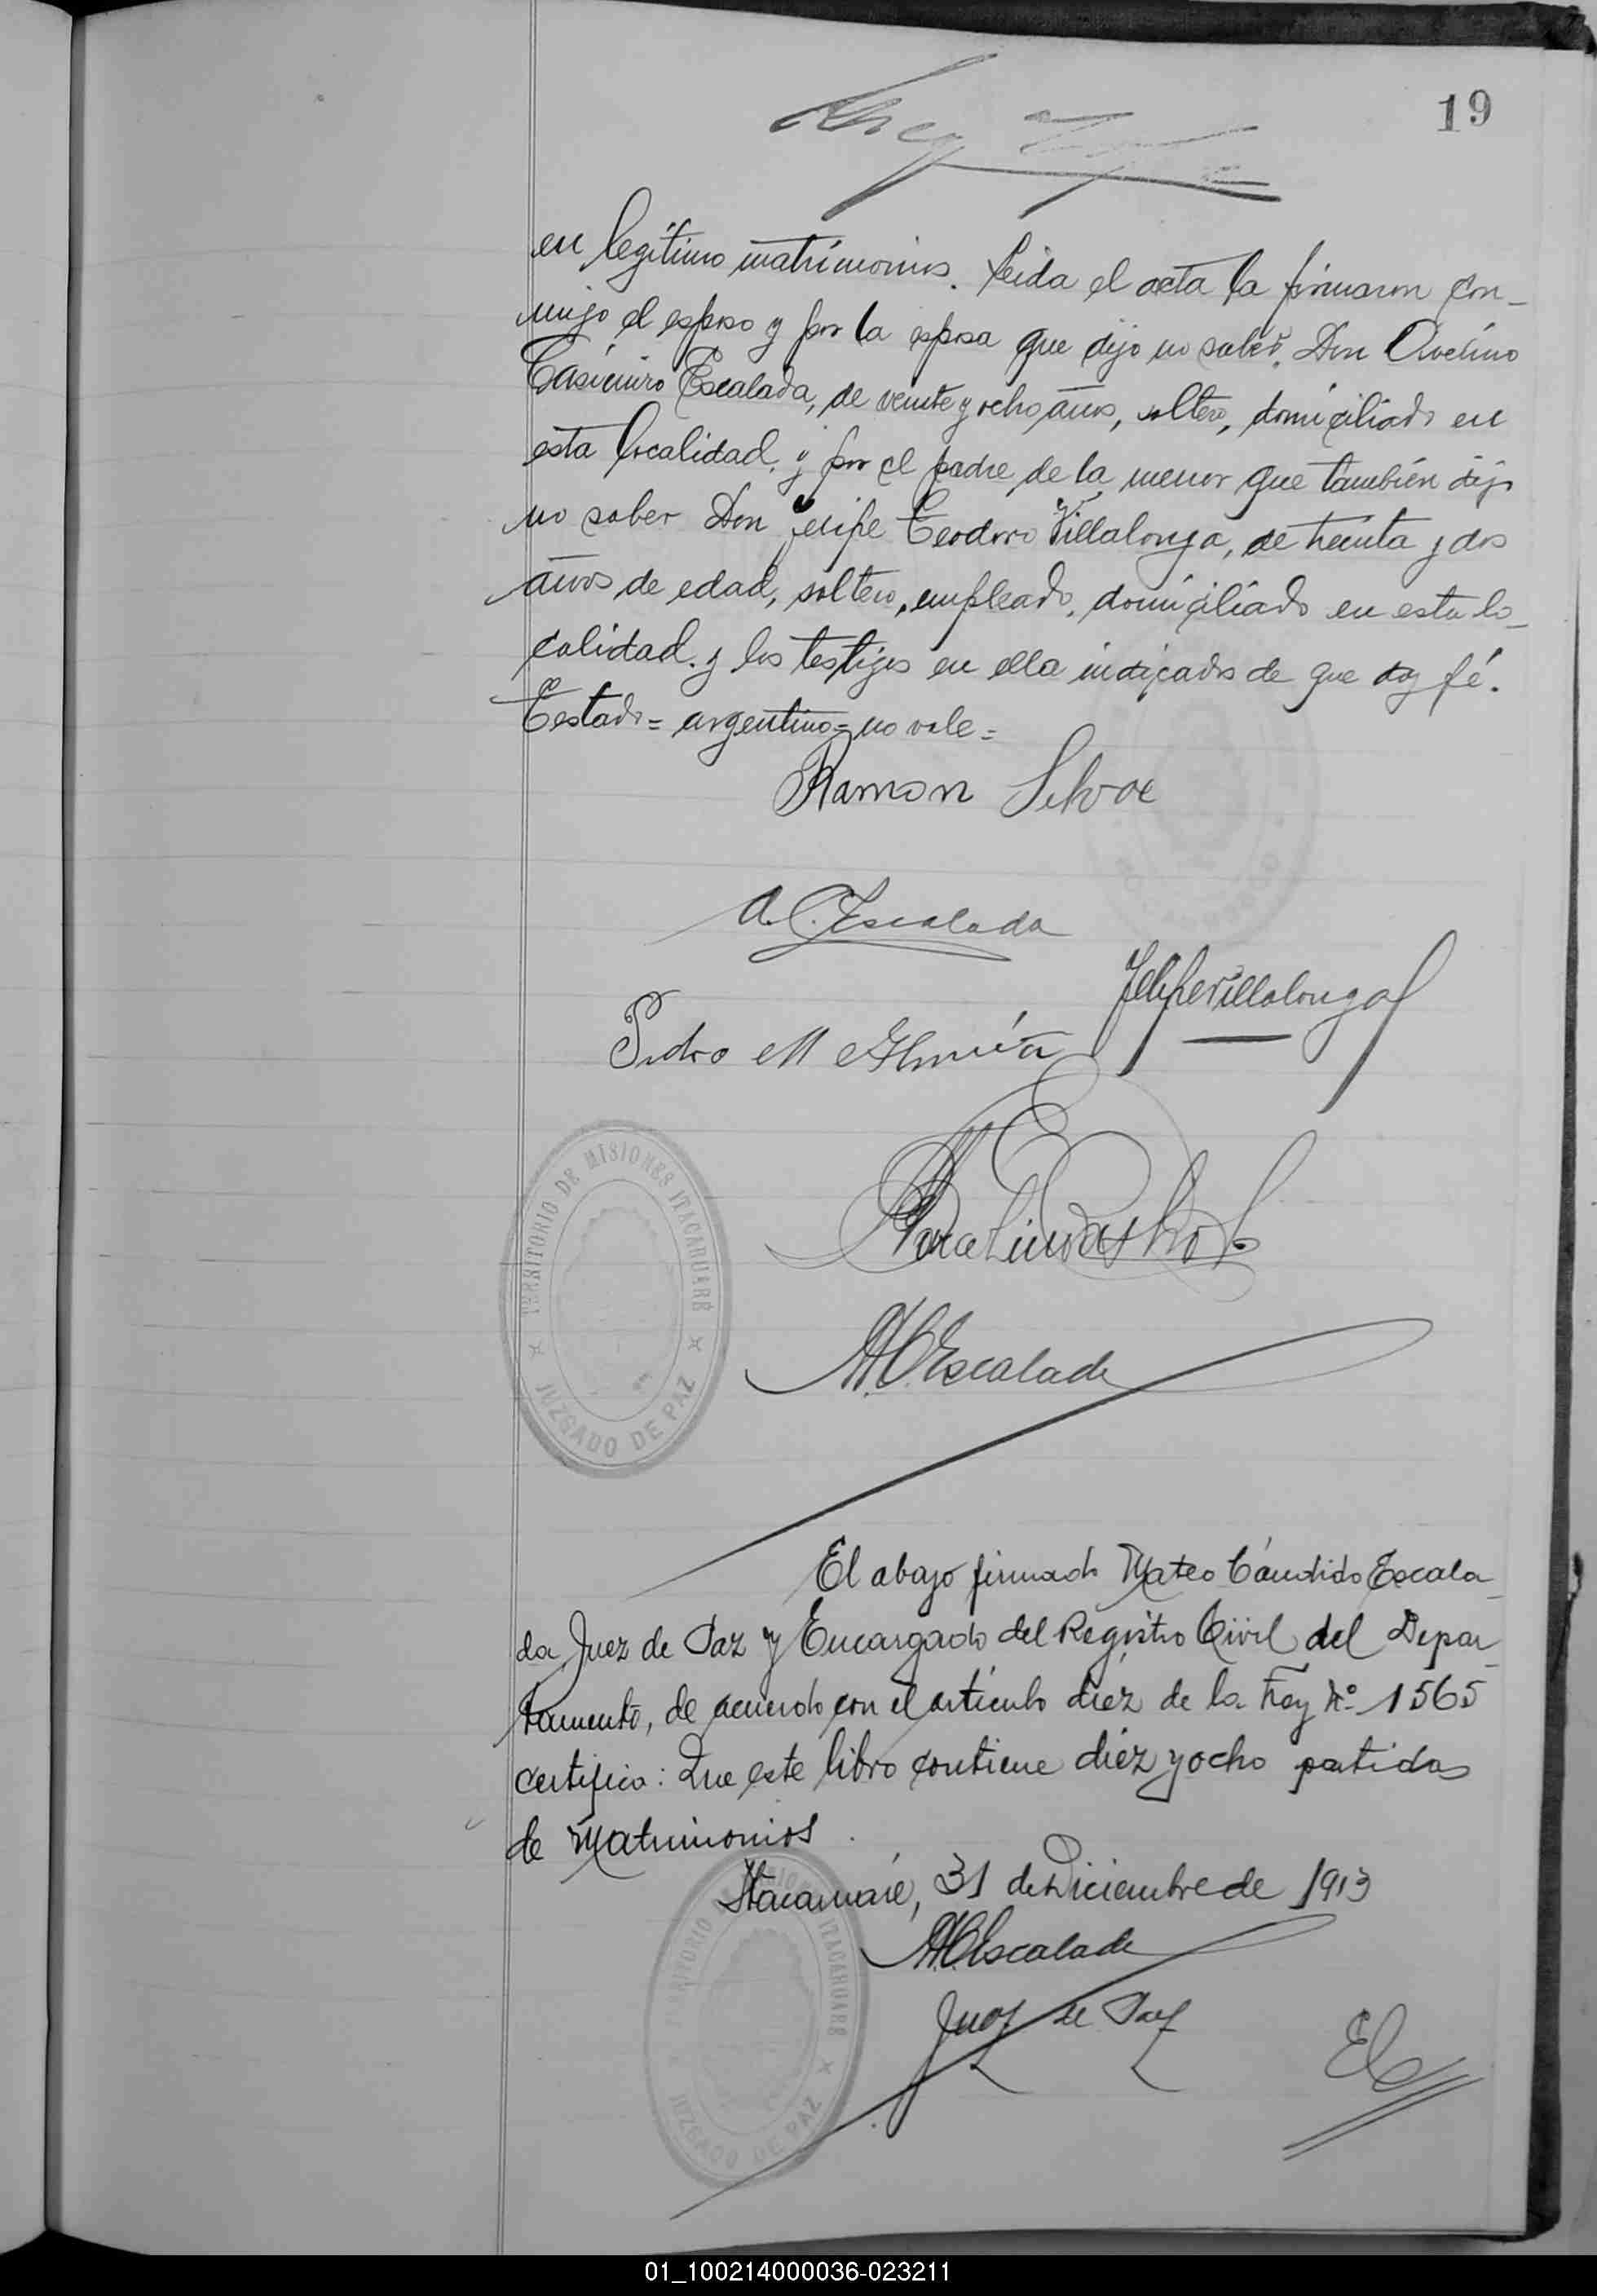 19
en legítimo matrimonio. Leida el acta la firmaron con-
migo el esposo y por la esposa que dijo no saber, Don Avelino
Casimiro Escalada, de veinte y ocho años, soltero, domiciliado en
esta localidad, y por el padre de la menor que también dijo
no saber Don Felipe Teodoro Villalonga, de treinta y dos
años de edad, soltero, empleado, domiciliado en esta lo-
calidad. y los testigos en ella indicados de que doy fé.
Testado = argentino = no vale =
Ramon Silva
A. C. Escalada
Felipe Villalonga
Pedro M
TERRITORIO DE MISIONES ITACARUARÉ
JUZGADO DE PAZ
M.C. Escalada
El abajo firmado Mateo Cándido Escala-
da, Juez de Paz y Encargado del Registro Civil del Depar-
tamento, de acuerdo con el artículo diéz de la Ley Nº 1565
certifico: Que este libro contiene diéz y ocho partidas
de Matrimonios.
Itacaruaré, 31 de Diciembre de 1913
M.C. Escalada
Juez de Paz
TERRITORIO DE MISIONES ITACARUARÉ
JUZGADO DE PAZ
01_100214000036-023211